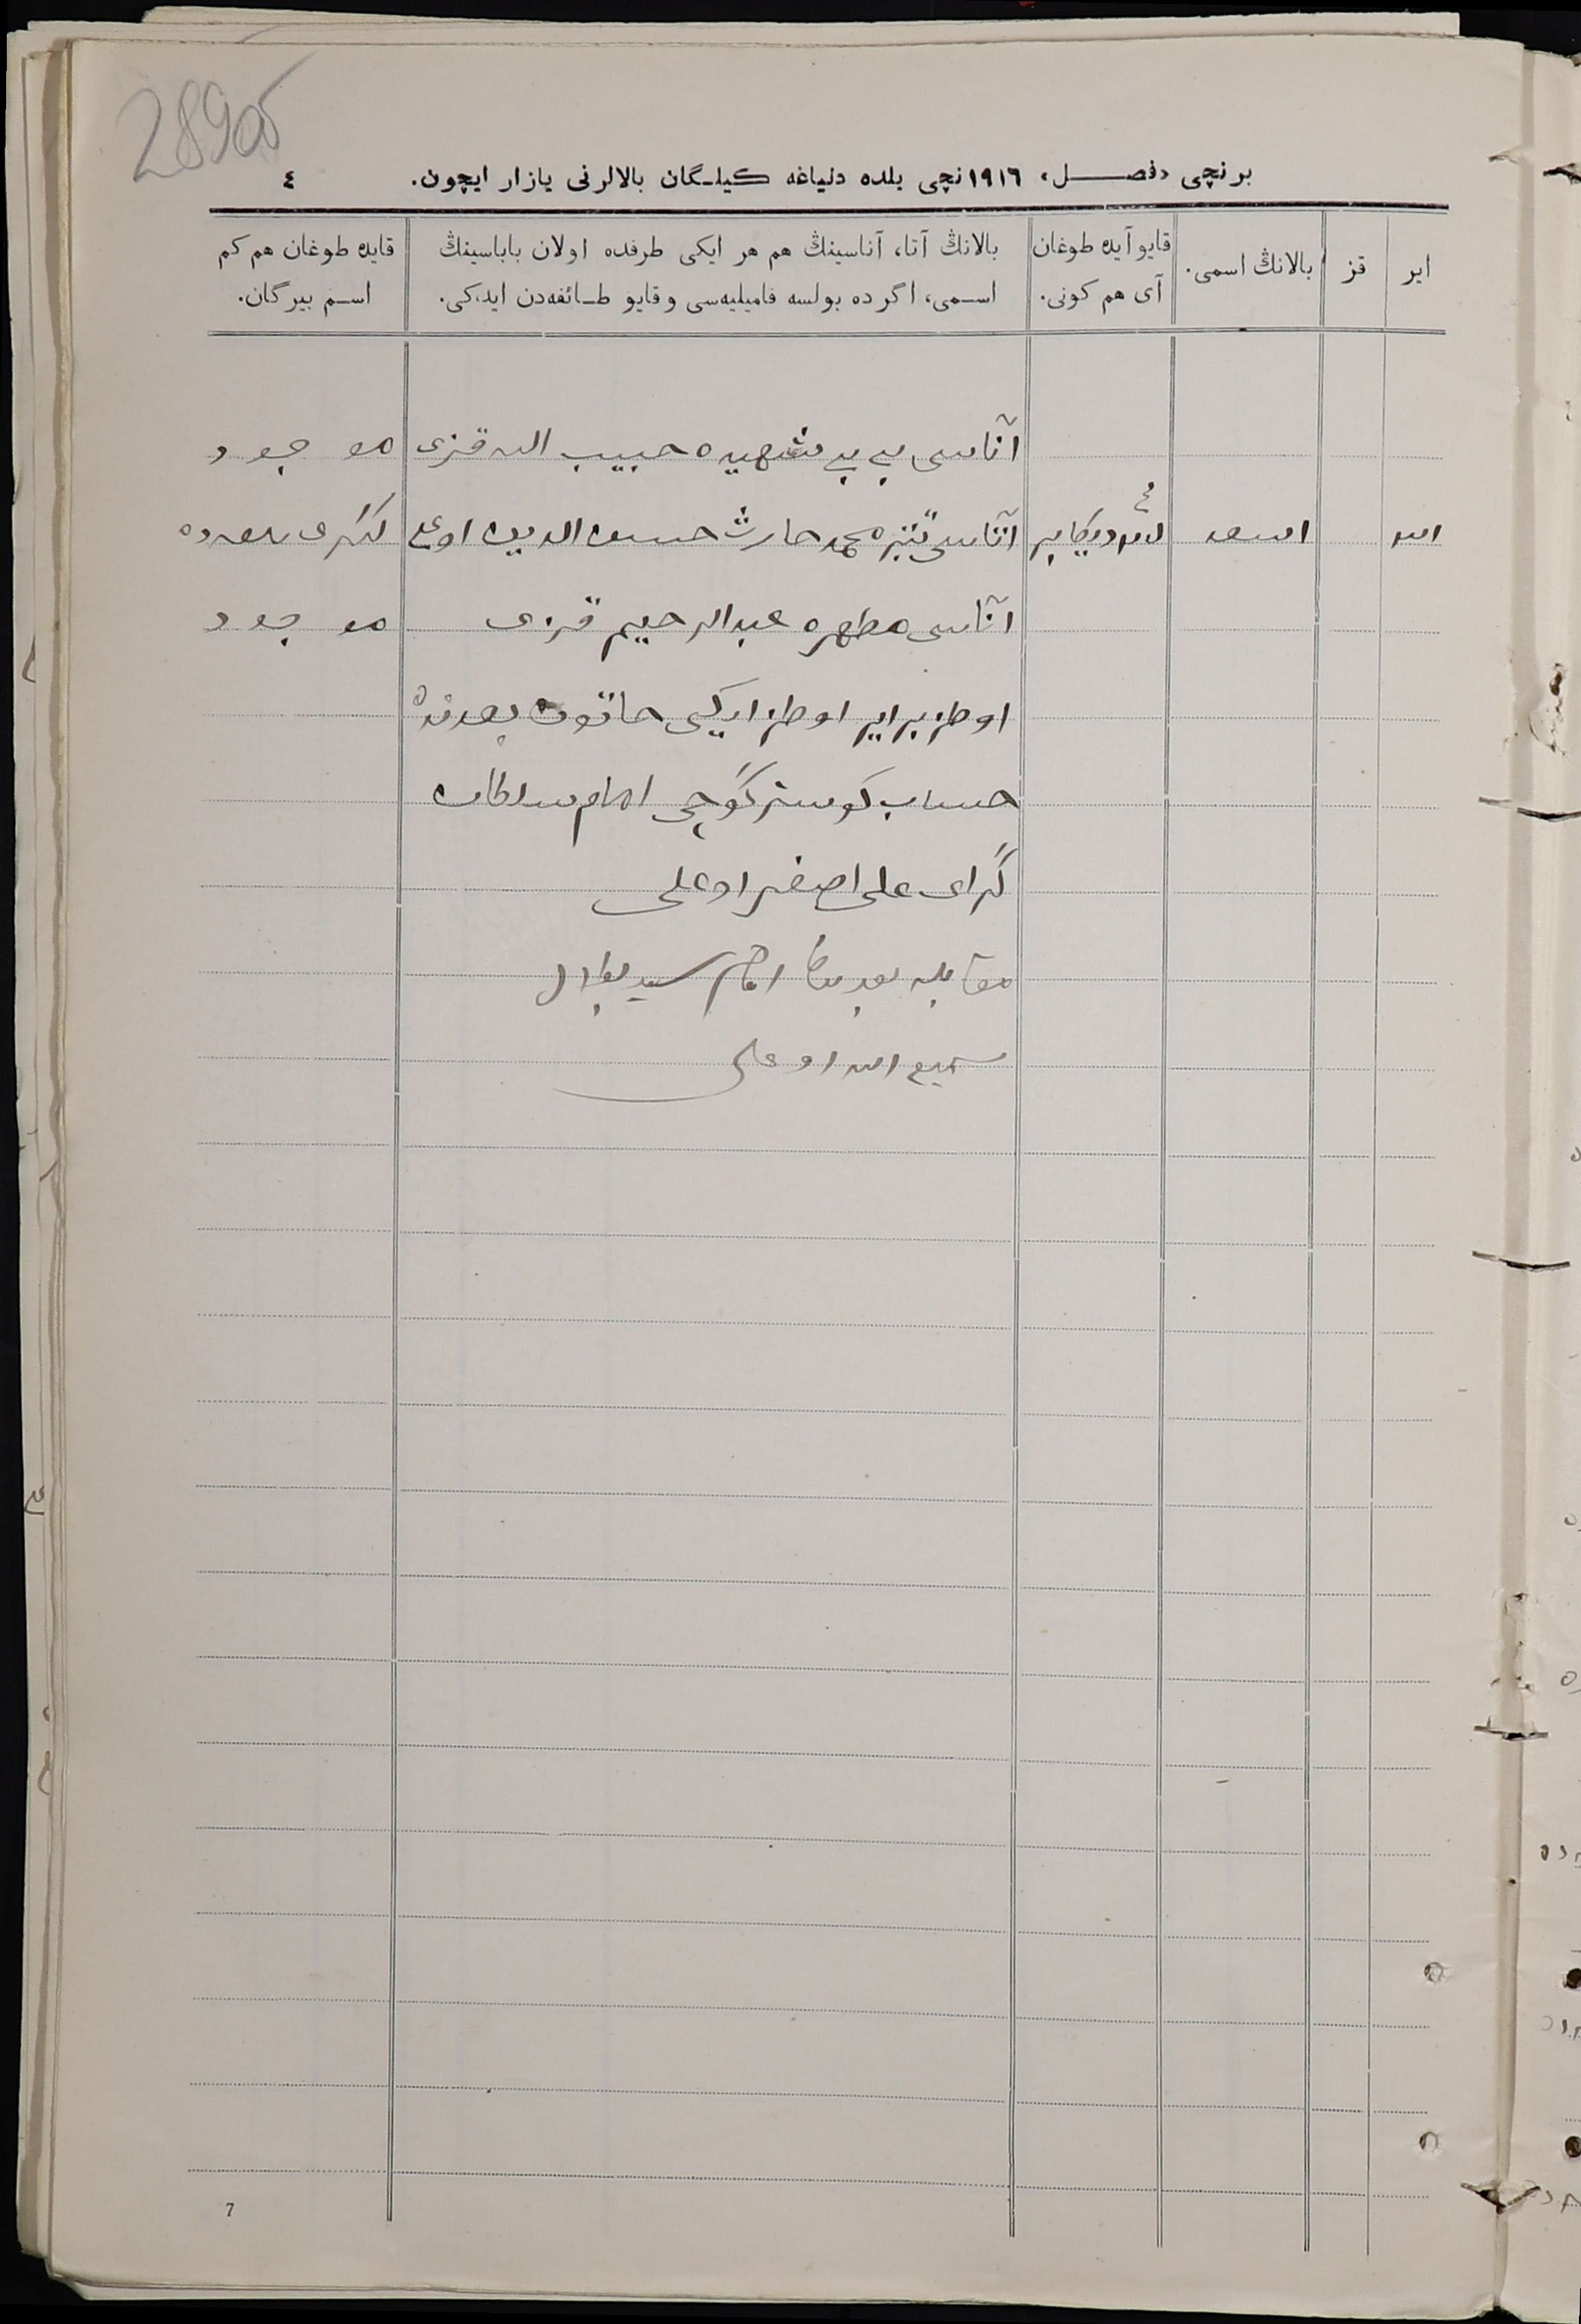 289об
برنچی «فصـــــل» ١٩١٦نچی یلده دنیاغه کیلـگان بالالرنی یازار ایچون. ٤
ایر
قز
بالانڭ اسمی.
قایو آیده طوغان
آی هم کونی.
بالانڭ آتا، آناسینڭ هم هر ایکی طرفده اولان باباسینڭ
اسـمی، اگر ده بولسه فامیلیه‌سی و قایو طـائفه‌دن ایدکی.
قایده طوغان هم کم
اسـم بیرگان.
آناسی بی بی مشهیده حبیب الله قزی موجود
اسعد دیکابر آتاسی محمد حارث حسن الدین اوغلی
آناسی مطهره عبدالرحیم قزی موجود
اوطز بر ایر اوطز ایکی خاتون
حساب کوسترگوچی امام سلطان
گرای علی اصغر اوغلی
مقابله امام سید
سمیع الله اوغلی
7